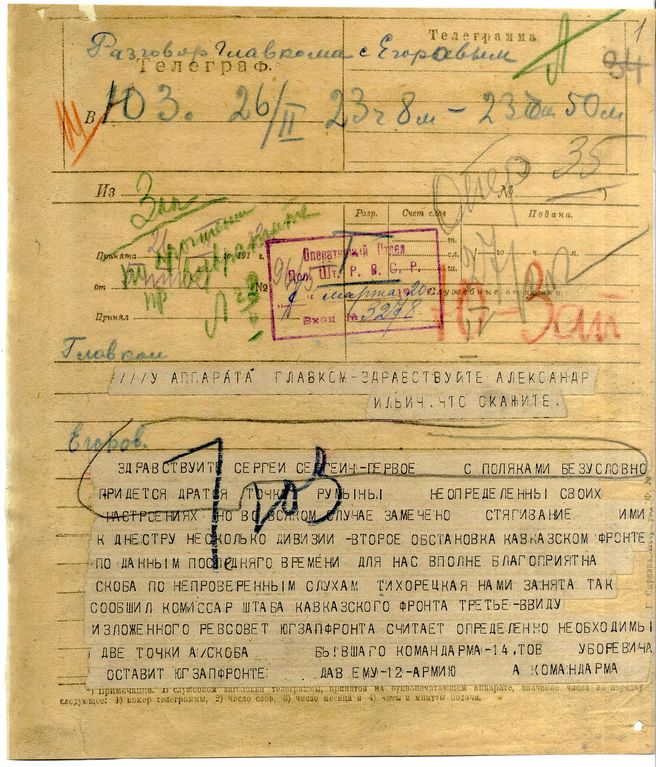 Телеграмма
1
Разговор Главкома с Егоровым
94
Телеграф.
В Юз. 26/II 23ч 8м – 23 50м
Из Зап
Опер 35
Разр. Счет слов Подана.
Принята
191 г.
Оперативный Отдел
Пол. Шт. Р. В. С. Р.
от №
марта 1920
Служебные отметки.
Принял
Вход. № 3278
Ю-Зап
Главком
////У АППАРАТА ГЛАВКОМ-ЗДРАВСТВУЙТЕ АЛЕКСАНДР
ИЛЬИЧ.ЧТО СКАЖИТЕ.
Егоров.
ЗДРАВСТВУИТЕ СЕРГЕИ СЕРГЕИЧ-ПЕРВОЕ С ПОЛЯКАМИ БЕЗУСЛОВНО
ПРИДЕТСЯ ДРАТСЯ ТОЧКА РУМЫНЫ НЕОПРЕДЕЛЕННЫ СВОИХ
НАСТРОЕНИЯХ НО ВО ВСЯКОМ СЛУЧАЕ ЗАМЕЧЕНО СТЯГИВАНИЕ ИМИ
К ДНЕСТРУ НЕСКОЛЬКО ДИВИЗИИ -ВТОРОЕ ОБСТАНОВКА КАВКАЗСКОМ ФРОНТЕ
ПО ДАННЫМ ПОСЛЕДНЯГО ВРЕМЕНИ ДЛЯ НАС ВПОЛНЕ БЛАГОПРИЯТНА
СКОБА ПО НЕПРОВЕРЕННЫМ СЛУХАМ ТИХОРЕЦКАЯ НАМИ ЗАНЯТА ТАК
СООБШИЛ КОМИССАР ШТАБА КАВКАЗСКОГО ФРОНТА ТРЕТЬЕ-ВВИДУ
ИЗЛОЖЕННОГО РЕВСОВЕТ ЮГЗАПФРОНТА СЧИТАЕТ ОПРЕДЕЛЕННО НЕОБХОДИМЫ
ДВЕ ТОЧКИ А/СКОБА БЫВШАГО КОМАНДАРМА-14,ТОВ УБОРЕВИЧА
ОСТАВИТ ЮГЗАПФРОНТЕ: ДАВ ЕМУ-12-АРМИЮ А КОМАНДАРМА
*) Примечание. В служебном заголовке телеграммы, принятой на буквопечатающем аппарате, значение чисел по порядку
следующее: 1) номер телеграммы, 2) число слов, 3) число месяца и 4) часы с минуты подачи.